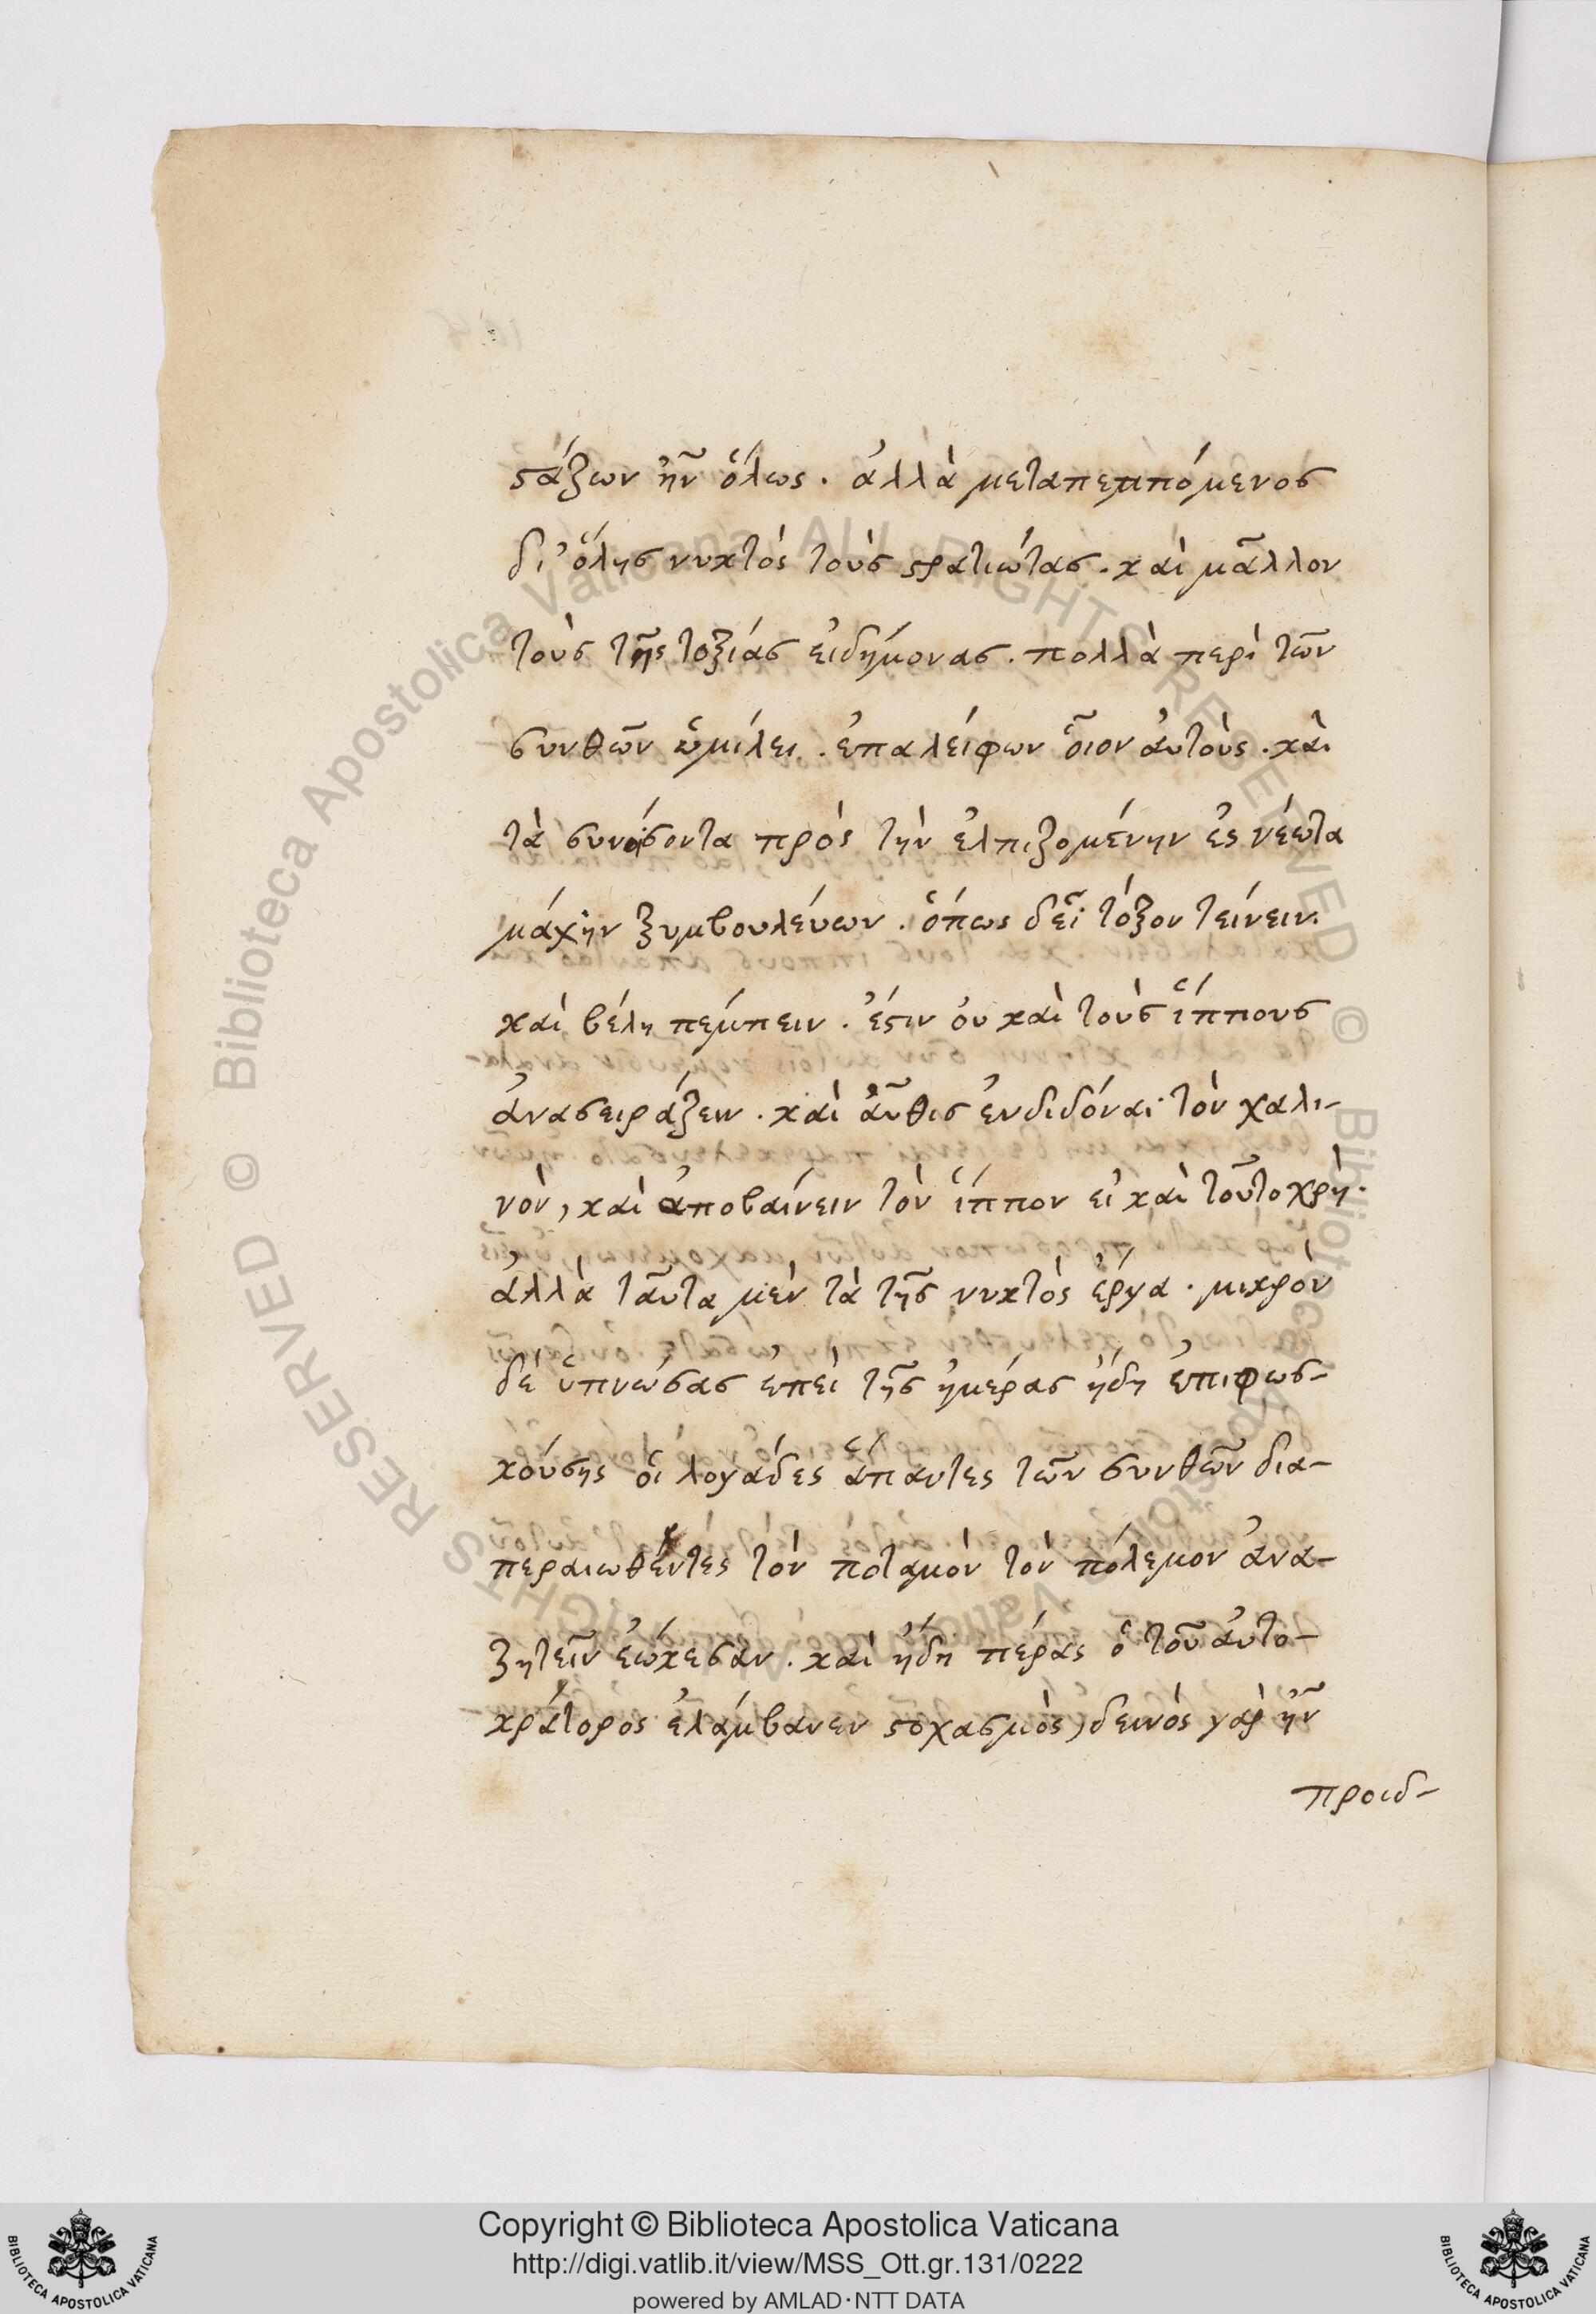 στάζων ἦν ὅλως. ἀλλὰ μεταπεμπόμενος
δι' ὅλης νυκτὸς τοὺς στρατιώτας. καὶ μᾶλλον
τοὺς τῆς τοξίας εἰδήμονας. πολλὰ περὶ τῶν
συνθῶν ὡμίλει. ἐπαλείφων οἷον αὐτοὺς. καὶ
τὰ συνοίσοντα πρὸς τὴν ἐλπιζομένην ἐς νέωτα
μάχην ξυμβουλεύων. ὅπως δεῖ τόξον τείνειν.
καὶ βέλη πέμπειν. ἔστιν οὗ καὶ τοὺς ἵππους
ἀνασειράζειν. καὶ αὖθις ἐνδιδόναι τὸν χαλι-
νὸν, καὶ ἀποβαίνειν τὸν ἵππον εἰ καὶ τοῦτο χρὴ.
ἀλλὰ ταῦτα μὲν τὰ τῆς νυκτὸς ἔργα. μικρὸν
δὲ ὑπνώσας ἐπεὶ τῆς ἡμέρας ἤδη ἐπιφωσ-
κούσης οἱ λογάδες ἅπαντες τῶν συνθῶν δια-
περαιωθέντες τὸν ποταμὸν τὸν πόλεμον ἀνα-
ζητεῖν ἐῴκεσαν. καὶ ἤδη πέρας ὁ τοῦ αὐτο-
κράτορος ἐλάμβανεν στοχασμὸς, δεινὸς γὰρ ἦν
προιδ-
Copyright © Biblioteca Apostolica Vaticana
http://digi.vatlib.it/view/MSS_Ott.gr.131/0222
powered by AMLAD·NTT DATA